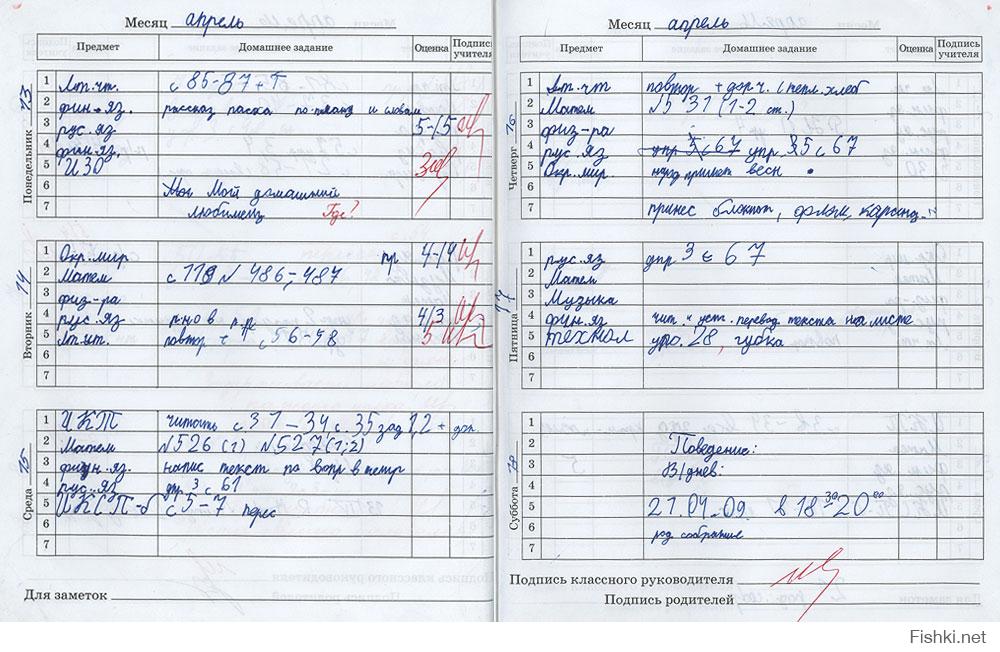 Месяц апрель
Предмет Домашнее задание Оценка Подпись учителя
Понедельник 13
1 Лт.чт. с 85-87 + Т
2 фин.яз. рассказ пасха по плану и словам
3 рус.яз 5-/5
4 фин.яз.
5 ИЗО
6 Мой домашний
7 любимец Где?
Вторник 14
1 Окр.мир пр 4-/4
2 Матем с 119 № 486,-487
3 физ-ра
4 рус.яз 4/3
5 Лт.чт. повтор с 56-48 5
6
7
Среда 15
1 ИКТ читать с 31-34, с.35 зад 1,2 + доп.
2 Матем №526 (1) №527 (1,2)
3 фин.яз. напис текст по вопр в петр
4 рус.яз упр 3 с 61
5 с 5-7 перес
6
7
Для заметок
Месяц апрель
Предмет Домашнее задание Оценка Подпись учителя
Четверг 16
1 Лт.чт
2 Матем №531 (1-2 ст.)
3 физ-ра
4 рус.яз упр 5 с 67 упр. 35 с 67
5 Окр.мир. весн
6
7 принес блокнот,
Пятница 17
1 рус.яз упр 3 с 67
2 Матем
3 Музыка
4 фин.яз чит. и уст. перевод текста на листе
5 урок. 28, губка
6
7
Суббота 18
1
2 Поведение:
3 В/днев:
4
5 21.04.09. в 18 30 - 20 00
6 род собрание
7
Подпись классного руководителя
Подпись родителей
Fishki.net